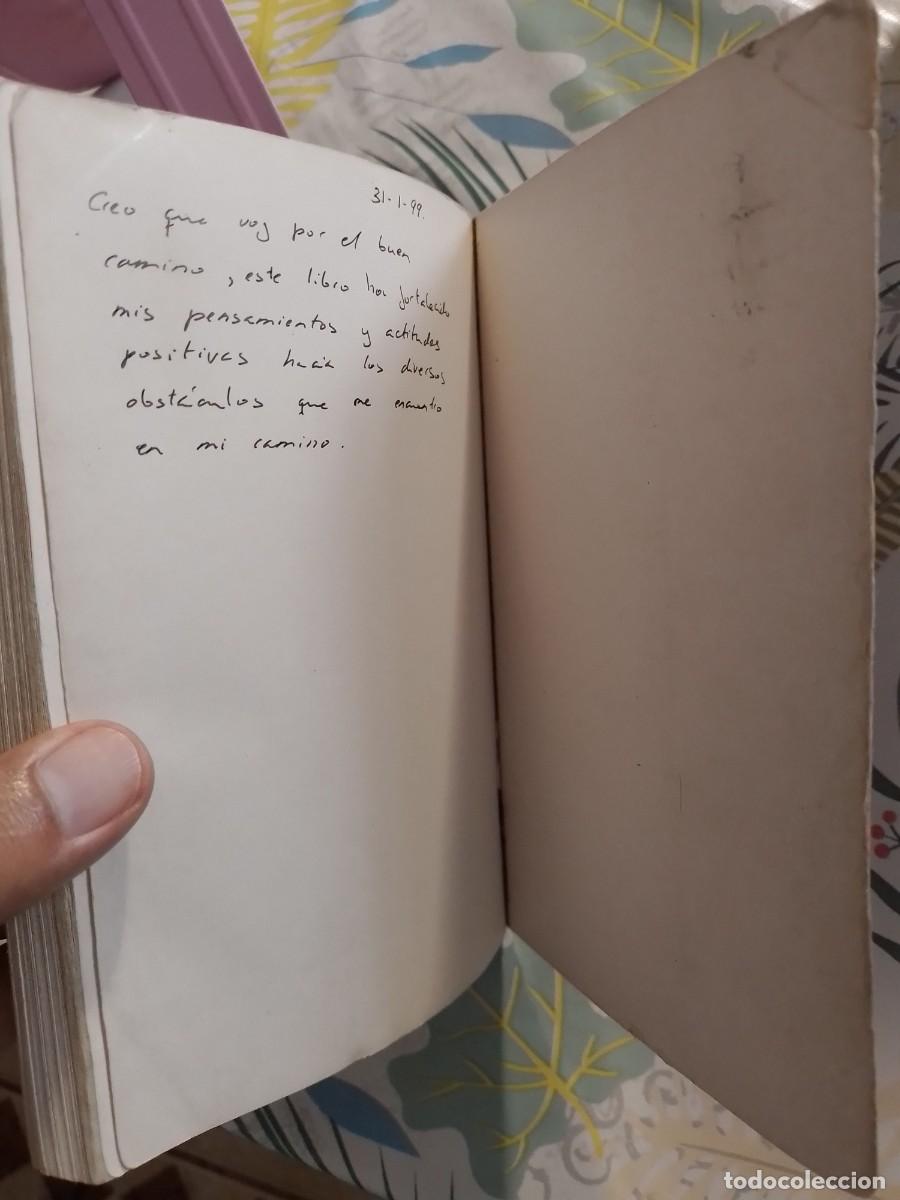 31-1-99.
Creo que voy por el buen
camino, este libro ha fortalecido
mis pensamientos y actitudes
positivas hacia los diversos
obstáculos que me encuentro
en mi camino.
todocoleccion